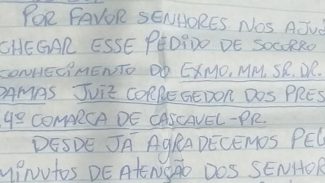 POR FAVOR SENHORES NOS AJUD
CHEGAR ESSE PEDIDO DE SOCORRO
CONHECIMENTO DO EXMO. MM. SR. DR.
DAMAS JUIZ CORREGEDOR DOS PRES
4º COMARCA DE CASCAVEL-PR.
DESDE JÁ AGRADECEMOS PEL
MINUTOS DE ATENÇÃO DOS SENHOR